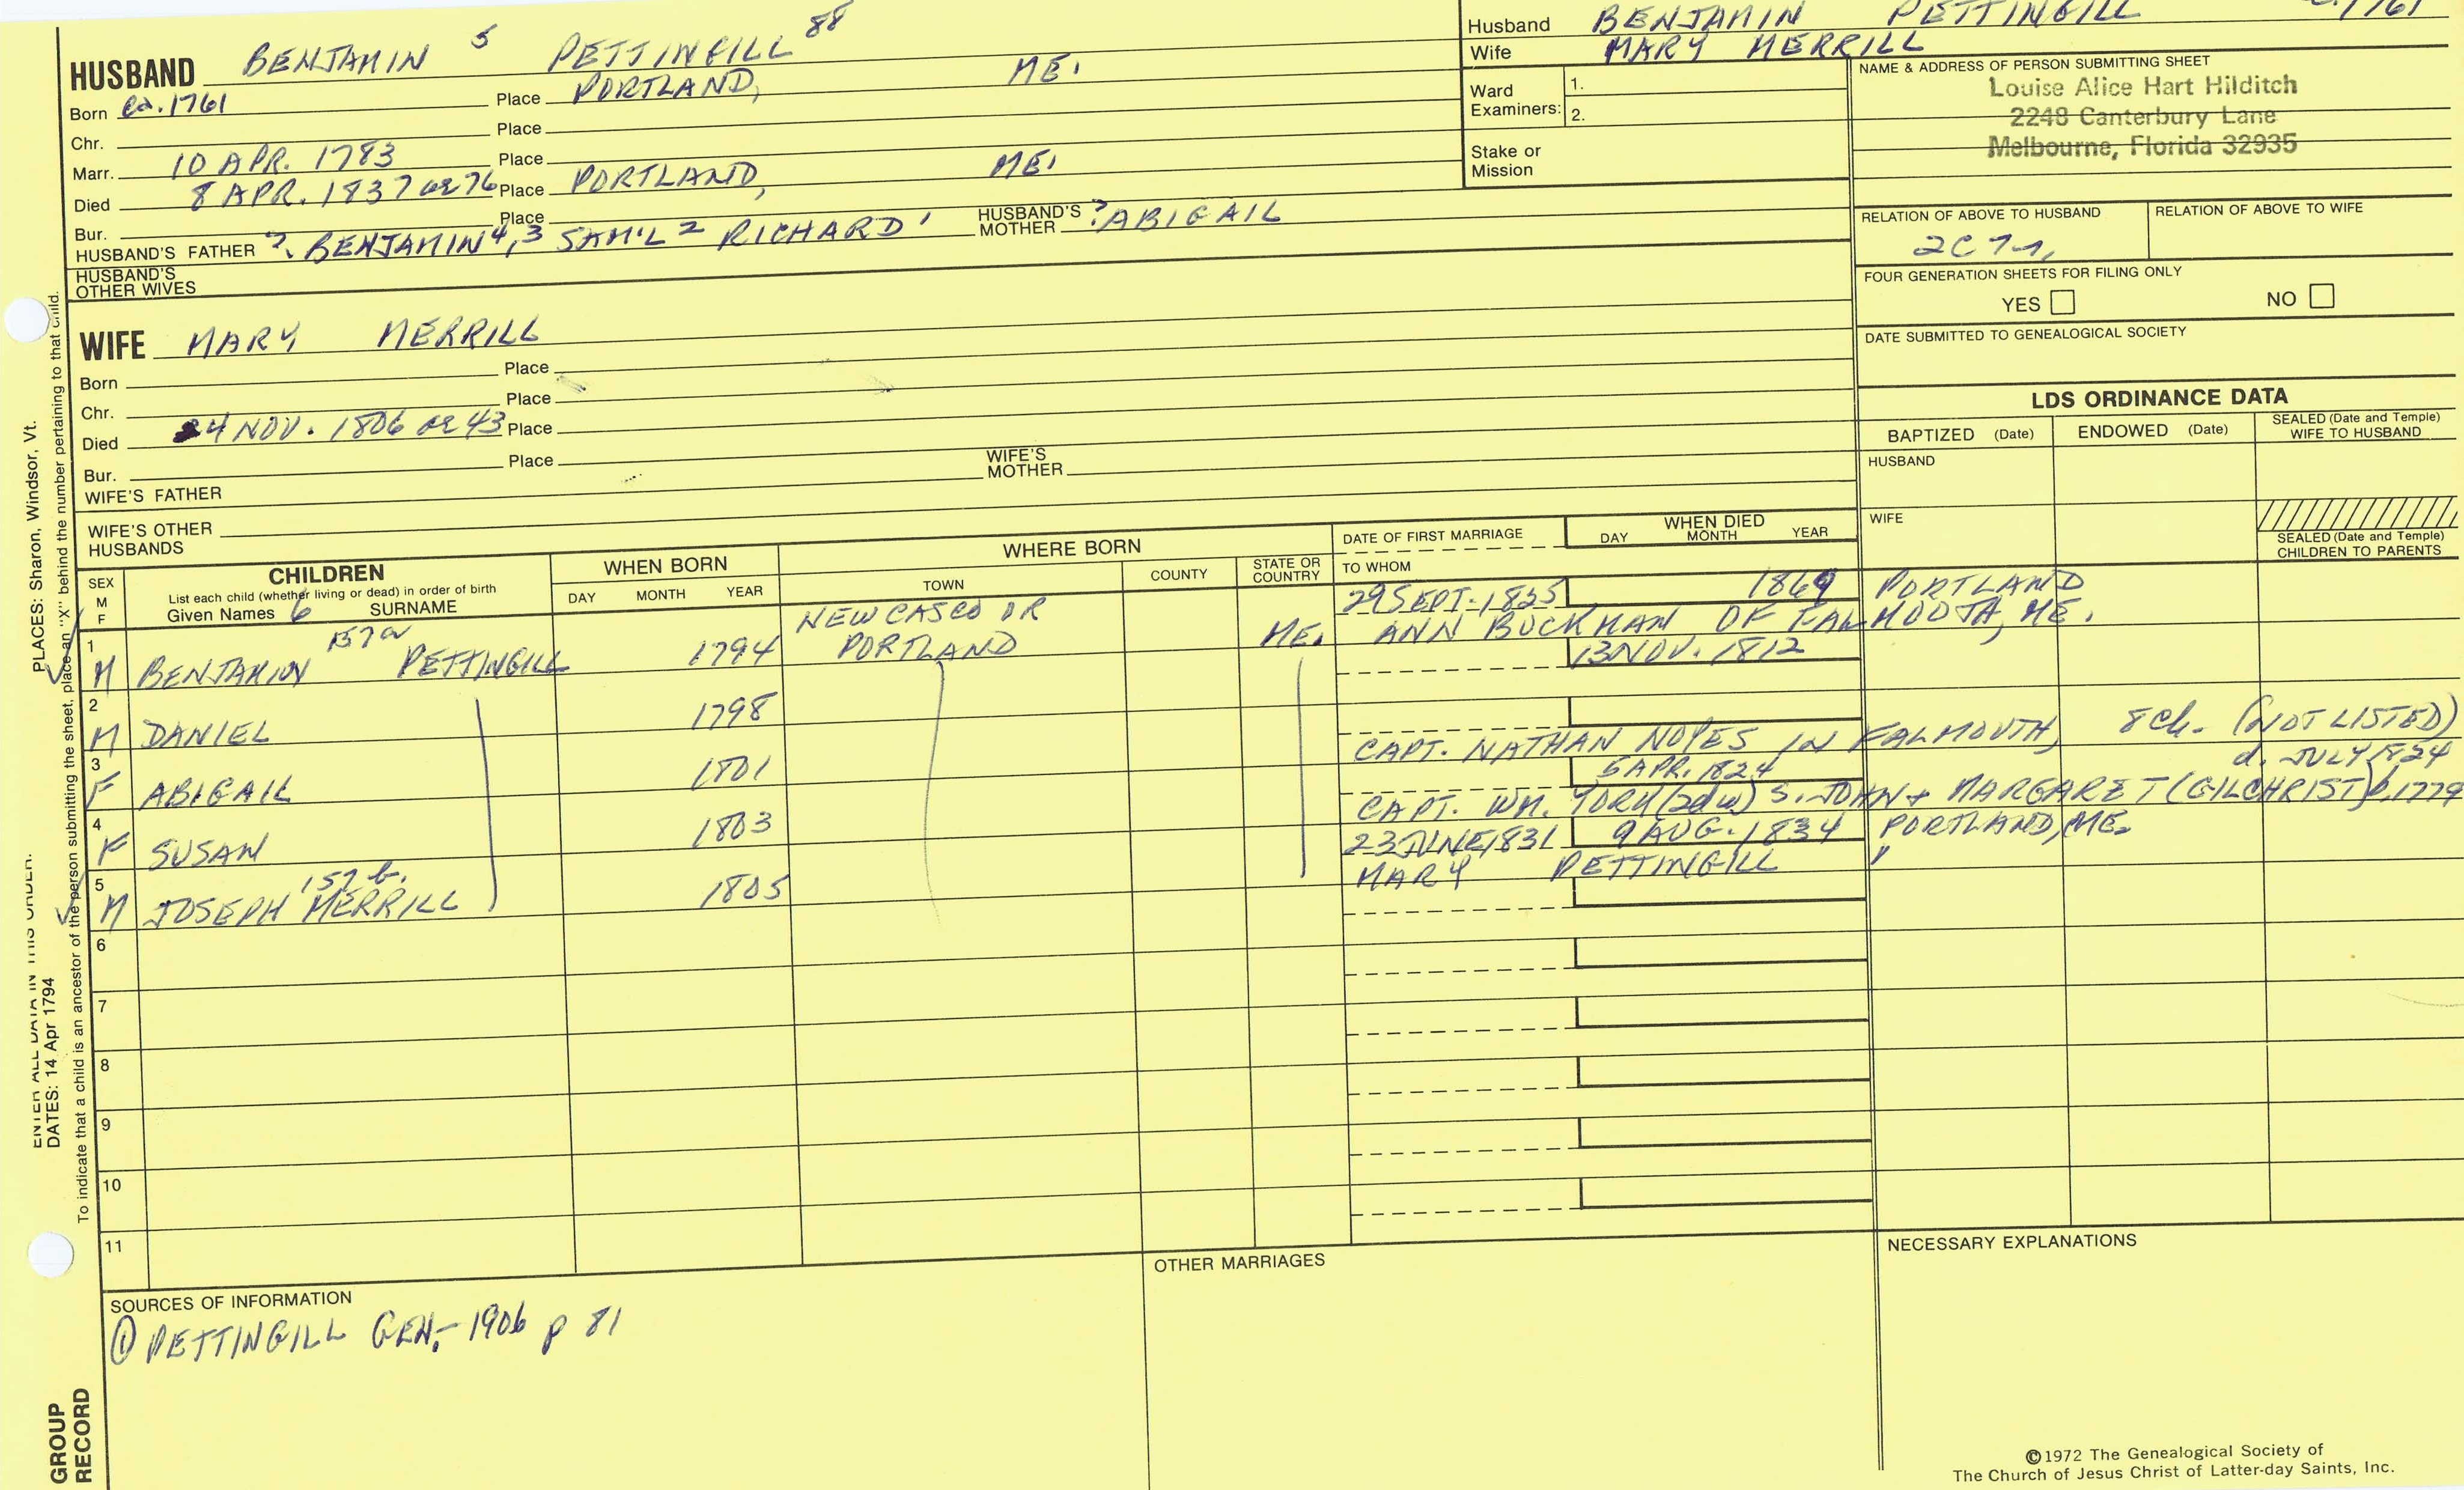 HUSBAND BENJAMIN 5 PETTINGILL 88
Born ca. 1761 Place PORTLAND, ME.
Chr. Place
Marr. 10 APR. 1783 Place
Died 8 APR. 1837 ae 76 Place PORTLAND, ME.
Bur. Place
HUSBAND'S FATHER ?. BENJAMIN 4, 3 SAM'L 2 RICHARD 1 HUSBAND'S MOTHER ? ABIGAIL
HUSBAND'S OTHER WIVES
Husband BENJAMIN PETTINGILL c. 1761
Wife MARY MERRILL
Ward Examiners: 1.
2.
Stake or Mission
NAME & ADDRESS OF PERSON SUBMITTING SHEET
Louise Alice Hart Hilditch
2248 Canterbury Lane
Melbourne, Florida 32935
RELATION OF ABOVE TO HUSBAND RELATION OF ABOVE TO WIFE
2C7r,
FOUR GENERATION SHEETS FOR FILING ONLY
YES NO
DATE SUBMITTED TO GENEALOGICAL SOCIETY
WIFE MARY MERRILL
Born Place
Chr. Place
Died 24 NOV. 1806 ae 43 Place
Bur. Place
WIFE'S FATHER WIFE'S MOTHER
WIFE'S OTHER HUSBANDS
LDS ORDINANCE DATA
BAPTIZED (Date) ENDOWED (Date) SEALED (Date and Temple) WIFE TO HUSBAND
HUSBAND
WIFE
SEALED (Date and Temple) CHILDREN TO PARENTS
SEX M F
CHILDREN
List each child (whether living or dead) in order of birth
Given Names 6 SURNAME
WHEN BORN
DAY MONTH YEAR
WHERE BORN
TOWN COUNTY STATE OR COUNTRY
DATE OF FIRST MARRIAGE
TO WHOM
WHEN DIED
DAY MONTH YEAR
1 M BENJAMIN 157a PETTINGILL 1794 NEW CASCO OR PORTLAND ME. 29 SEPT. 1825 1869 PORTLAND
ANN BUCKMAN OF FALMOUTH, ME.
2 M DANIEL 1798 13 NOV. 1812
3 F ABIGAIL 1801 CAPT. NATHAN NOYES IN FALMOUTH, 8 Ch. (NOT LISTED)
4 F SUSAN 1803 5 APR. 1824 d. JULY 1824
CAPT. WM. YORK (2d w) S. JOHN + MARGARET (GILCHRIST) b. 1779
5 M JOSEPH 157b. MERRILL 1805 23 JUNE 1831 9 AUG. 1834 PORTLAND, ME.
MARY PETTINGILL "
6
7
8
9
10
11
SOURCES OF INFORMATION
① PETTINGILL GEN. - 1906 p 81
OTHER MARRIAGES
NECESSARY EXPLANATIONS
©1972 The Genealogical Society of
The Church of Jesus Christ of Latter-day Saints, Inc.
PLACES: Sharon, Windsor, Vt.
ENTER ALL DATA IN THIS ORDER:
DATES: 14 Apr 1794
To indicate that a child is an ancestor of the person submitting the sheet, place an "X" behind the number pertaining to that child.
GROUP RECORD